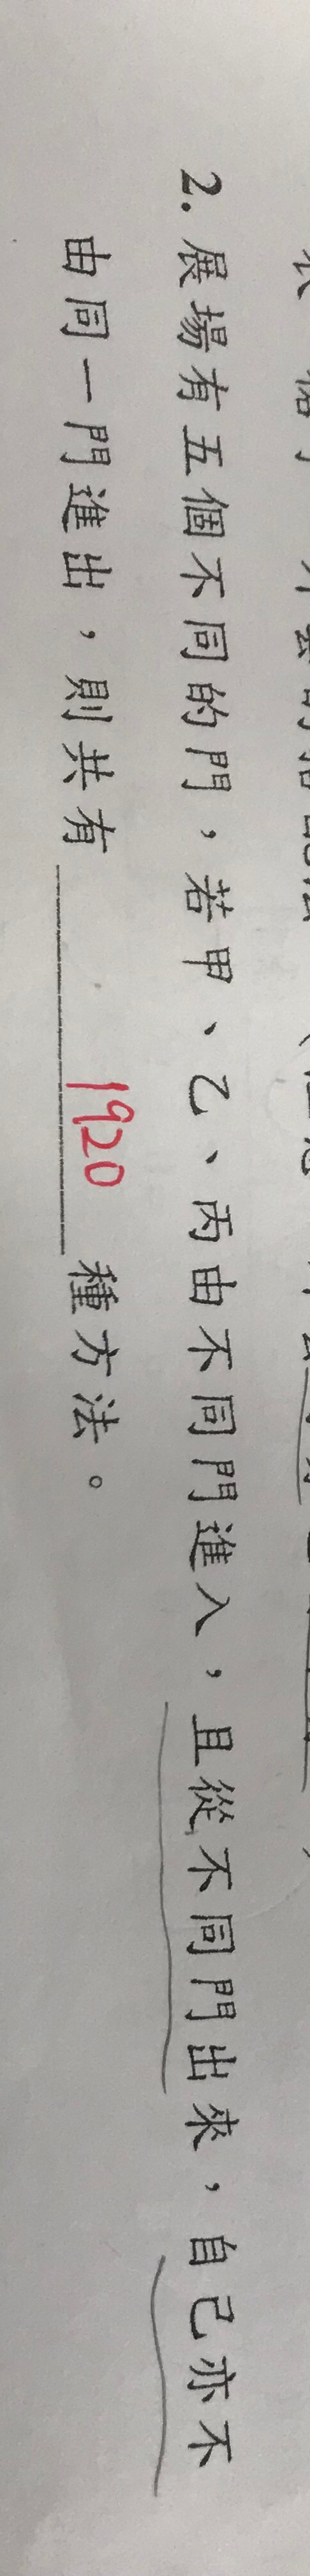 2. 展場有五個不同的門，若甲、乙、丙由不同門進入，且從不同門出來，自己亦不
由同一門進出，則共有 1920 種方法。